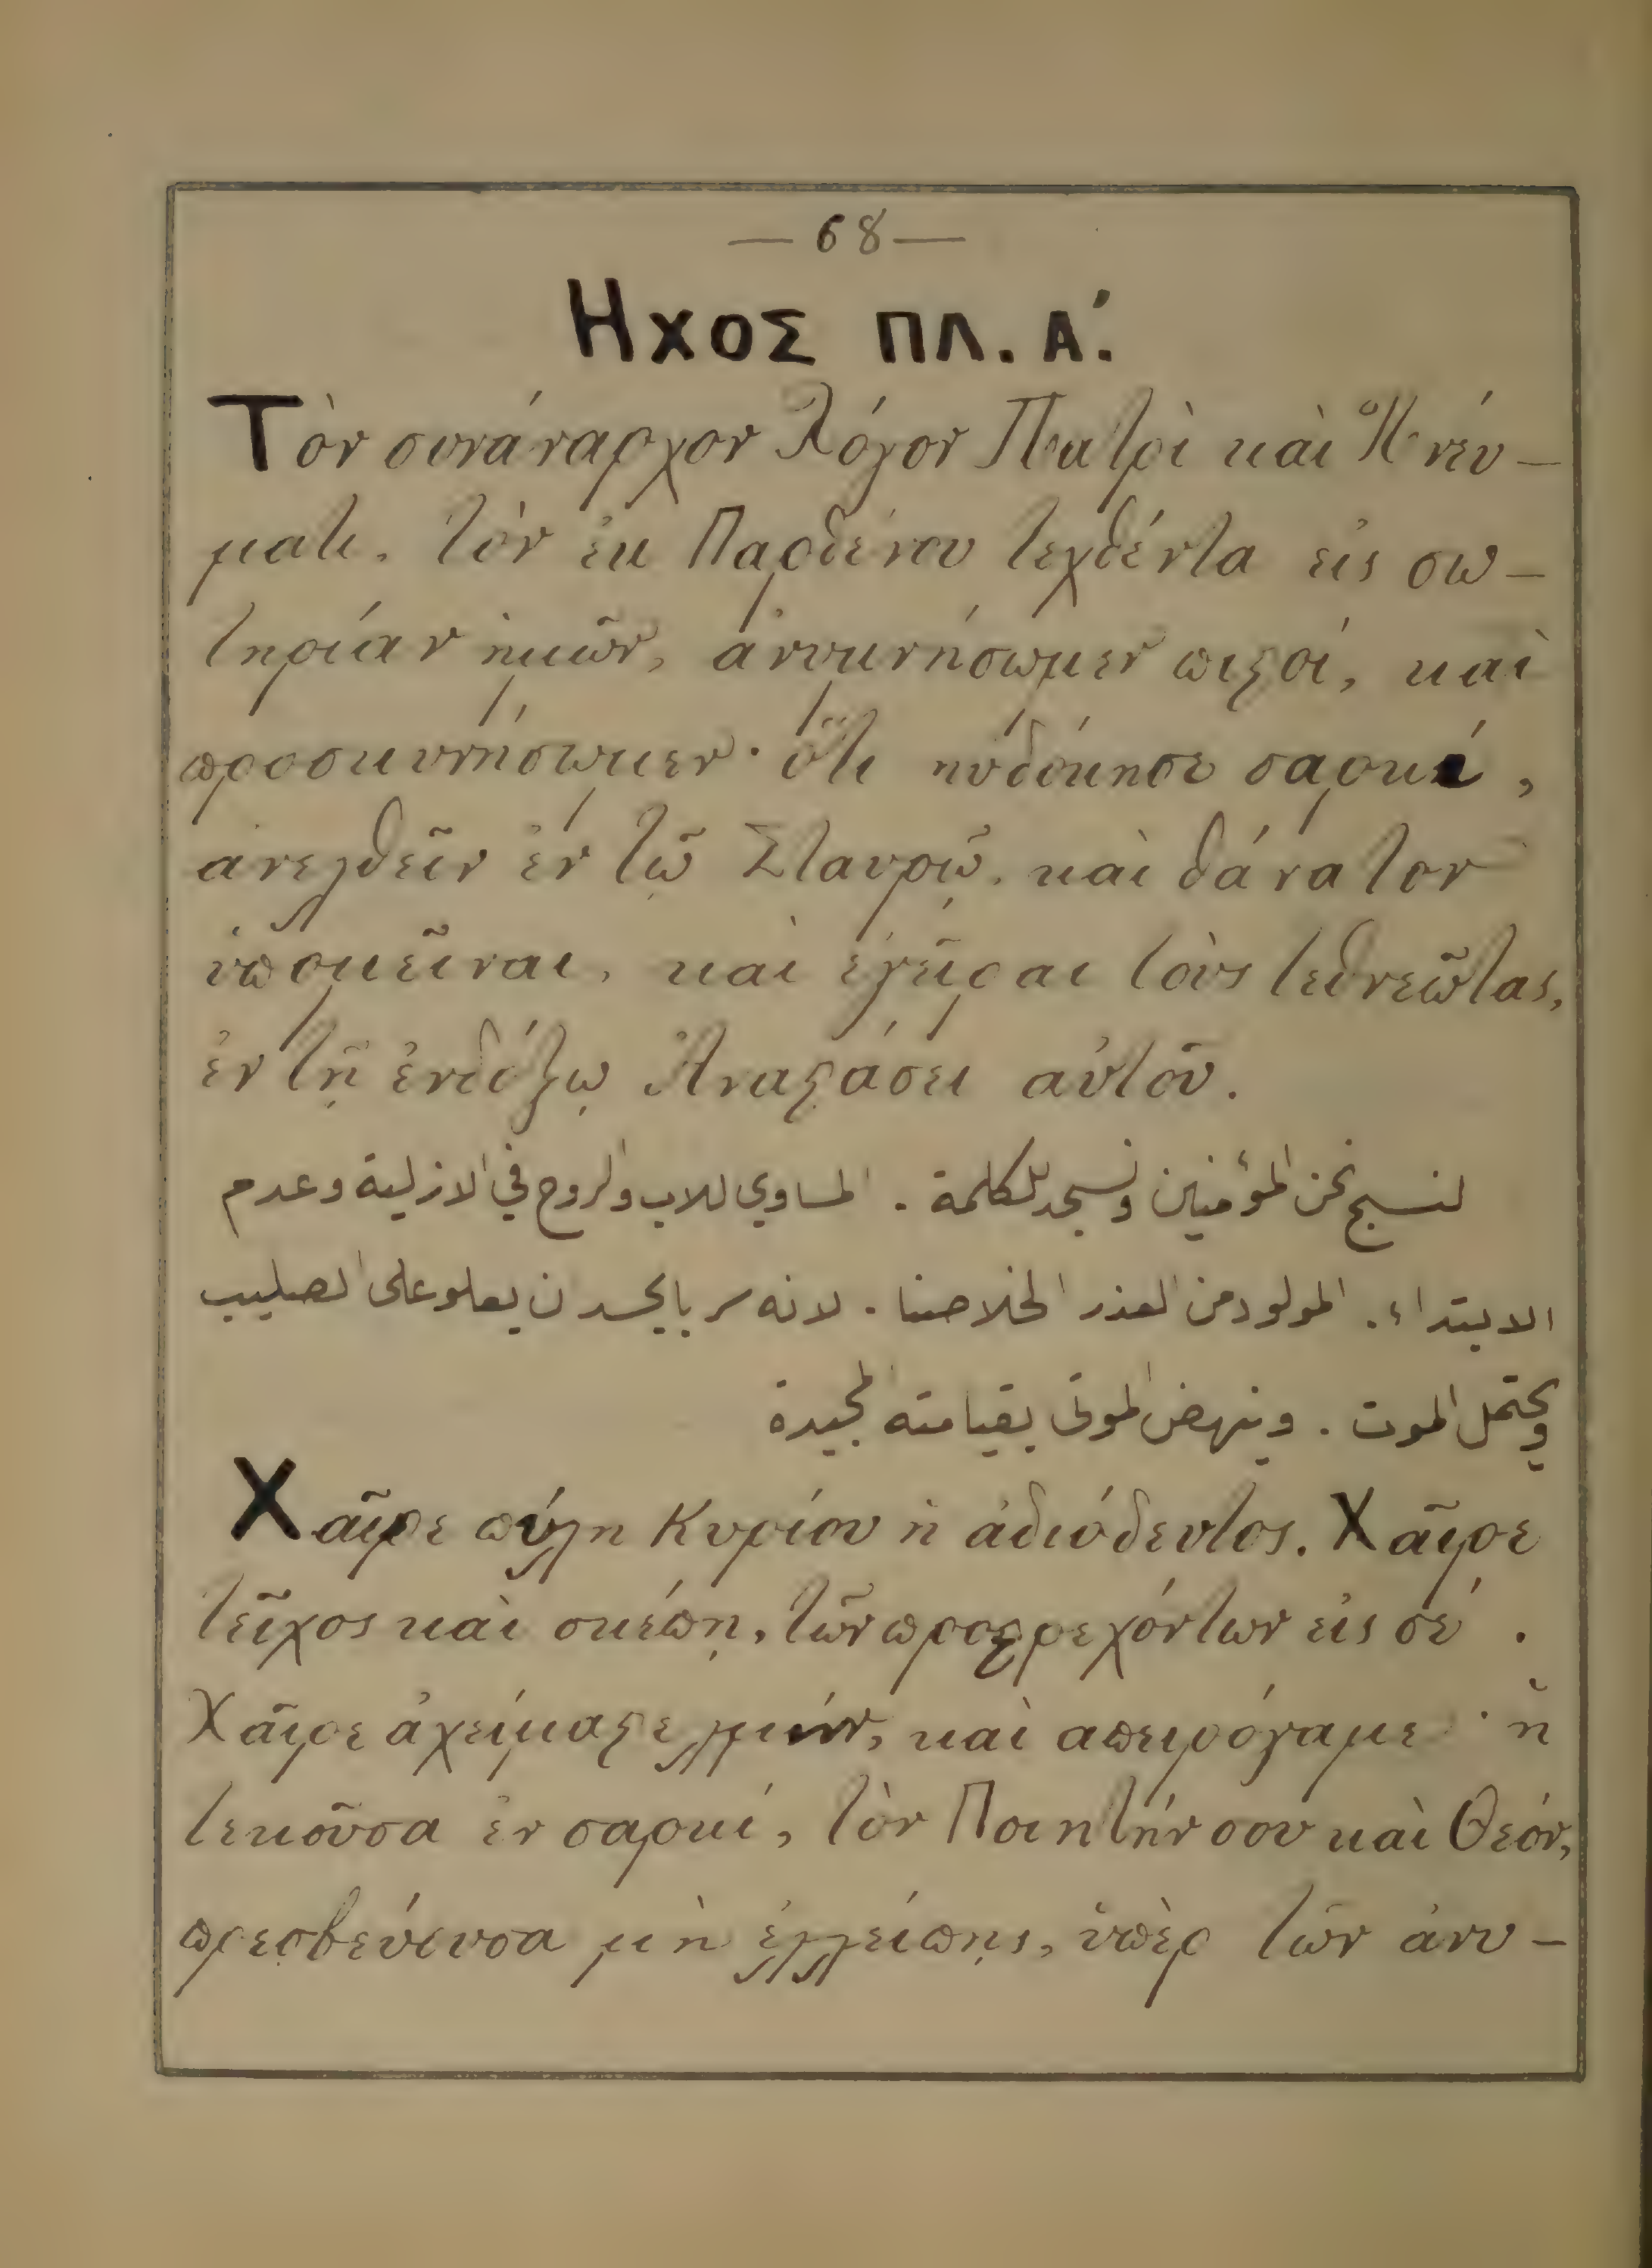 — 68 —
Ηχος πλ. Α΄.
Τὸν συνάναρχον Λόγον Πατρὶ καὶ Πνεύ-
ματι, τὸν ἐκ Παρθένου τεχθέντα εἰς σω-
τηρίαν ἡμῶν, ἀνυμνήσωμεν πιϛοί, καὶ
προσκυνήσωμεν· ὅτι ηὐδόκησε σαρκί,
ἀνελθεῖν ἐν τῷ Σταυρῷ, καὶ θάνατον
ὑπομεῖναι, καὶ ἐγεῖραι τοὺς τεθνεῶτας,
ἐν τῇ ἐνδόξῳ Ἀναϛάσει αὐτοῦ.
لنسبح نحن المؤمنين ونسجد للكلمة . المساوي للاب والروح في الازلية وعدم
الابتداء . المولود من العذر الخلاصنا . لانه سر بالجسد ان يعلو على الصليب
ويحتمل الموت . وينهض الموتى بقيامته المجيدة
Χαῖρε πύλη Κυρίου ἡ ἀδιόδευτος. Χαῖρε
τεῖχος καὶ σκέπη, τῶν προϛρεχόντων εἰς σέ .
Χαῖρε ἀχείμαϛε λιμήν, καὶ απειρόγαμε · ἡ
τεκοῦσα ἐν σαρκί, τὸν Ποιητήν σου καὶ Θεόν,
πρεσβεύουσα μὴ ἐλλείπῃς, ὑπὲρ τῶν ἀνυ-